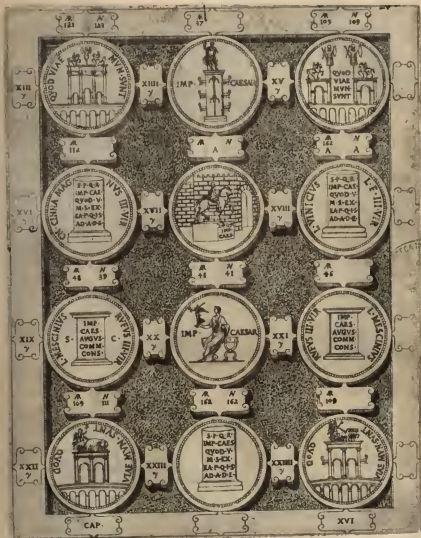 Æ N
121 123
57
Æ N
103 109
XIII
γ
QVOD VIAE MVN·SVNT
XIIII
γ
IMP· CAESAR
XV
γ
QVOD
VIAE
MVN·
SVNT
Æ
112
N
A
Æ N
162
A A
XVI
S·P·Q·R
IMP·CAE
QVOD·V
M·S·EX
EA·P·Q·I·S
AD·A·D·E
XVII
γ
IMP
CAES
XVIII
γ
L·VINICIVS L·F·III·VIR
S·P·Q·R
IMP·CAE
QVOD·V
M·S·EX
EA·P·Q·I·S
AD·A·D·E
Æ N
48 39
Æ N
48 41
Æ N
46
XIX
L·MESCINIVS RVFVS III·VIR
S· C·
IMP·
CAES
AVGVS
COMM
CONS·
XX
γ
IMP· CAESAR
XXI
γ
RVFVS III·VIR L·MESCINIVS
IMP·
CAES·
AVGVS
COMM·
CONS·
Æ N
109 111
Æ N
162 162
Æ
109
XXII
γ
QVOD VIAE MVN·SVNT
XXIII
γ
S·P·Q·R
IMP·CAES
QVOD·V
M·S·EX
EA·P·Q·I·S
AD·A·D·E
XXIIII
γ
QVOD VIAE MVN·SVNT
CAP·
XVI